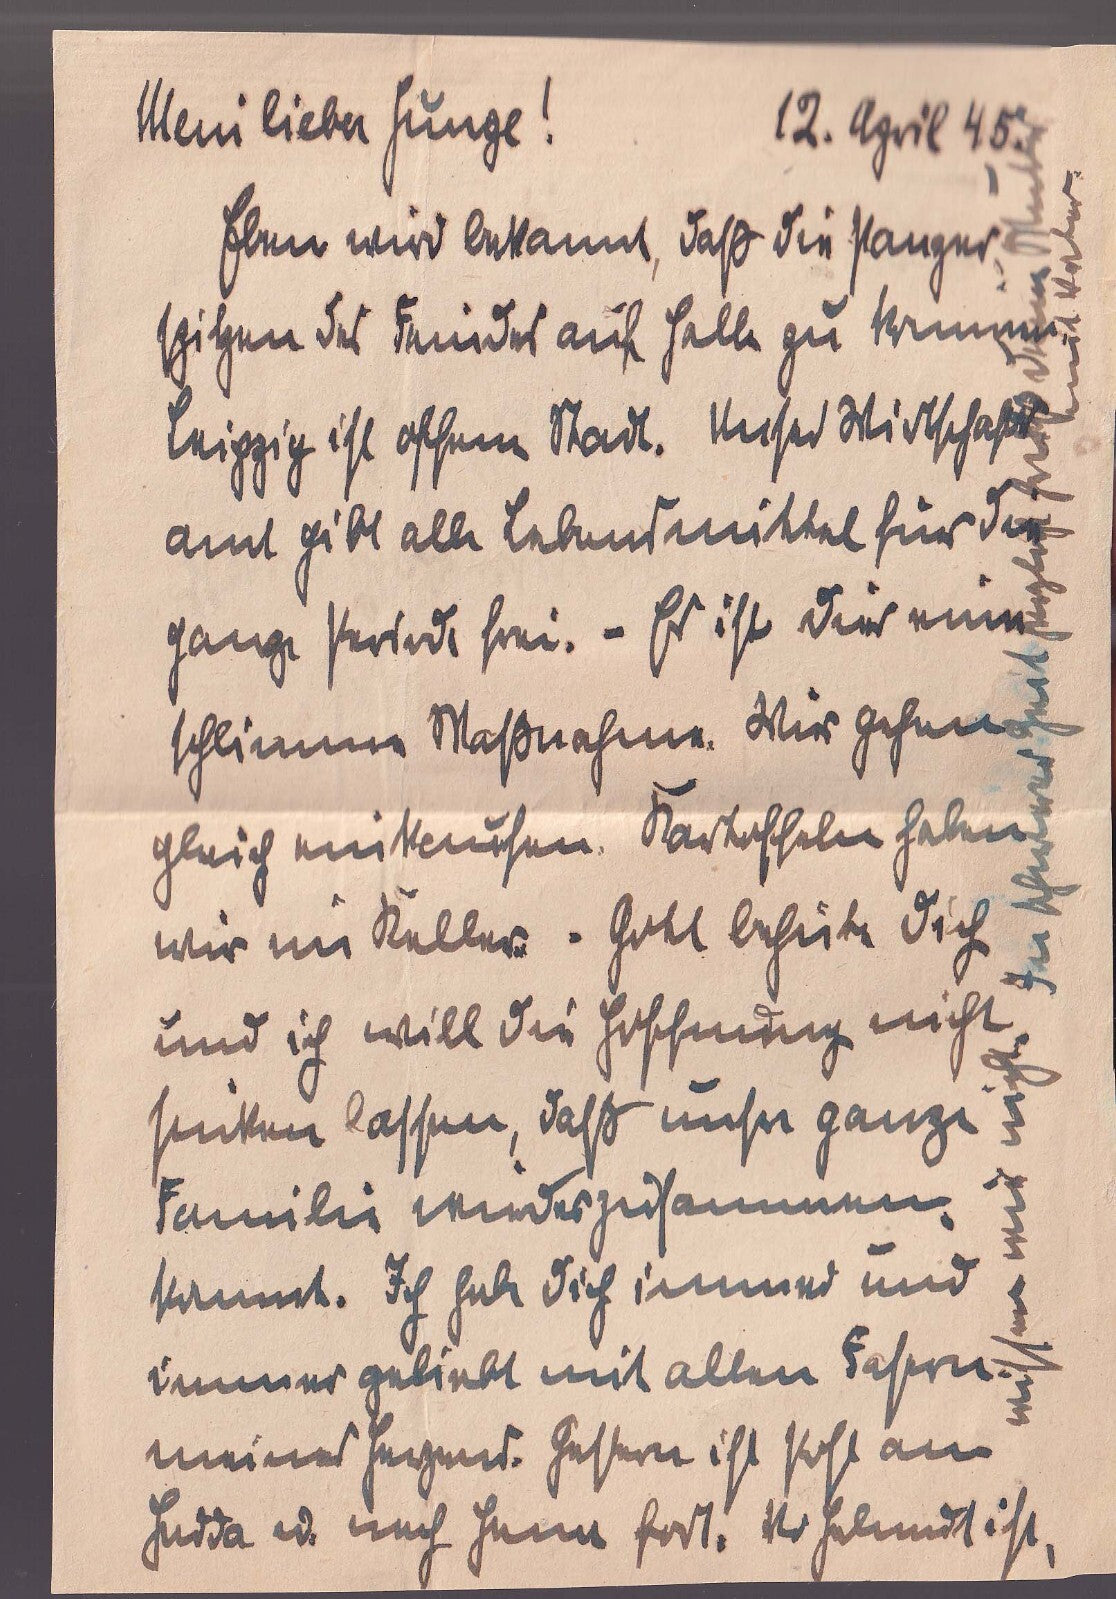 Mein lieber Junge! 12. April 45.
Eben wird bekannt, daß die Panzer-
spitzen des Feindes auf Halle zu kommen
Leipzig ist offene Stadt. Unser Wirtschafts
amt gibt alle Lebensmittel für die
ganze Periode frei. - Es ist dies eine
schlimme Maßnahme. Wir gehen
gleich einkaufen. Kartoffeln haben
wir im Keller. - Gott behüte Dich
und ich will die Hoffnung nicht
sinken lassen, daß unsre ganze
Familie wieder zusammen-
kommt. Ich habe Dich immer und
immer geliebt mit allen Fasern
meines Herzens. Gestern ist Post an
Hedda u. nach fort. Wo Helmut ist,
wissen wir nicht. In schwerer Zeit
und Vater.